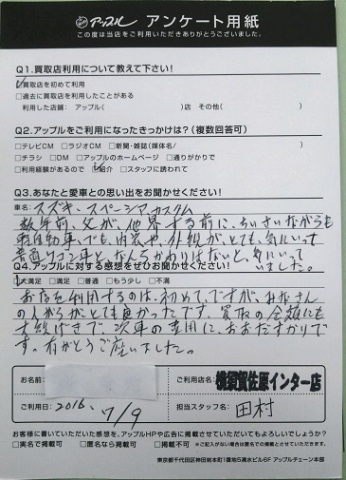 アップル アンケート用紙
この度は当店をご利用いただきありがとうございました。
Q1.買取店利用について教えて下さい!
□買取店を初めて利用
□過去に買取店を利用したことがある
利用した店舗： アップル( )店 その他( )
Q2.アップルをご利用になったきっかけは?(複数回答可)
□テレビCM □ラジオCM □新聞・雑誌(媒体名/ )
□チラシ □DM □アップルのホームページ □通りがかりで
□利用経験があるので □紹介 □スタッフに誘われて
Q3.あなたと愛車との思い出をお聞かせください!
車名：スズキ、スペーシアカスタム
数年前、父が、他界する前に、ちいさいながらも
軽自動車、でも、内装や、外観が、とても、気にいって
普通ワゴン車と、なんらかわりはないと、気にいって
いました。
Q4.アップルに対する感想をぜひお聞かせください!
□大満足 □満足 □普通 □もう少し □不満
お店を利用するのは、初めて、ですが、みなさん
の人がらがとても良かったです、買取の金額にも
大感げきで、次車の費用に、おおだすかりで
す。有がとうご座いました。
お名前
ご利用店名 横須賀佐原インター店
ご利用日 2016. 7/9
担当スタッフ名 田村
お客様に書いていただいた感想を、アップルHPや広告に掲載させていただいてもよろしいでしょうか?
□実名で掲載可 □匿名なら掲載可 □掲載不可 ※ご記入がない場合は匿名での掲載とさせていただきます
東京都千代田区神田紺町1番地5清水ビル6F アップルチェーン本部